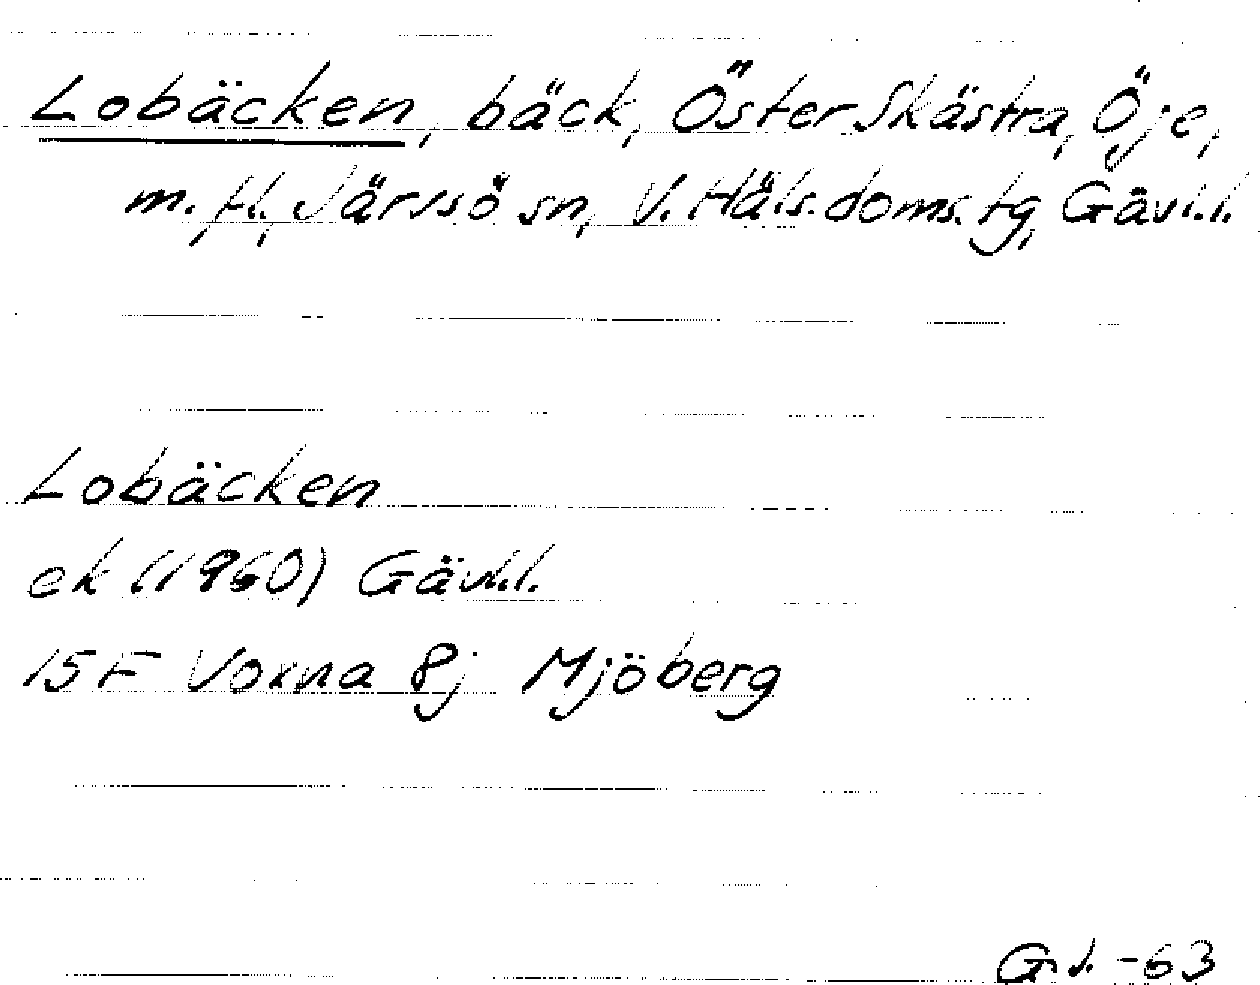 Lobäcken, bäck, Öster Skästra, Öje,
m. fl., Järvsö sn, V. Häls. doms. tg, Gävl.l.
Lobäcken
ek (1960) Gävl.l.
15F Voxna 8j Mjöberg
-63